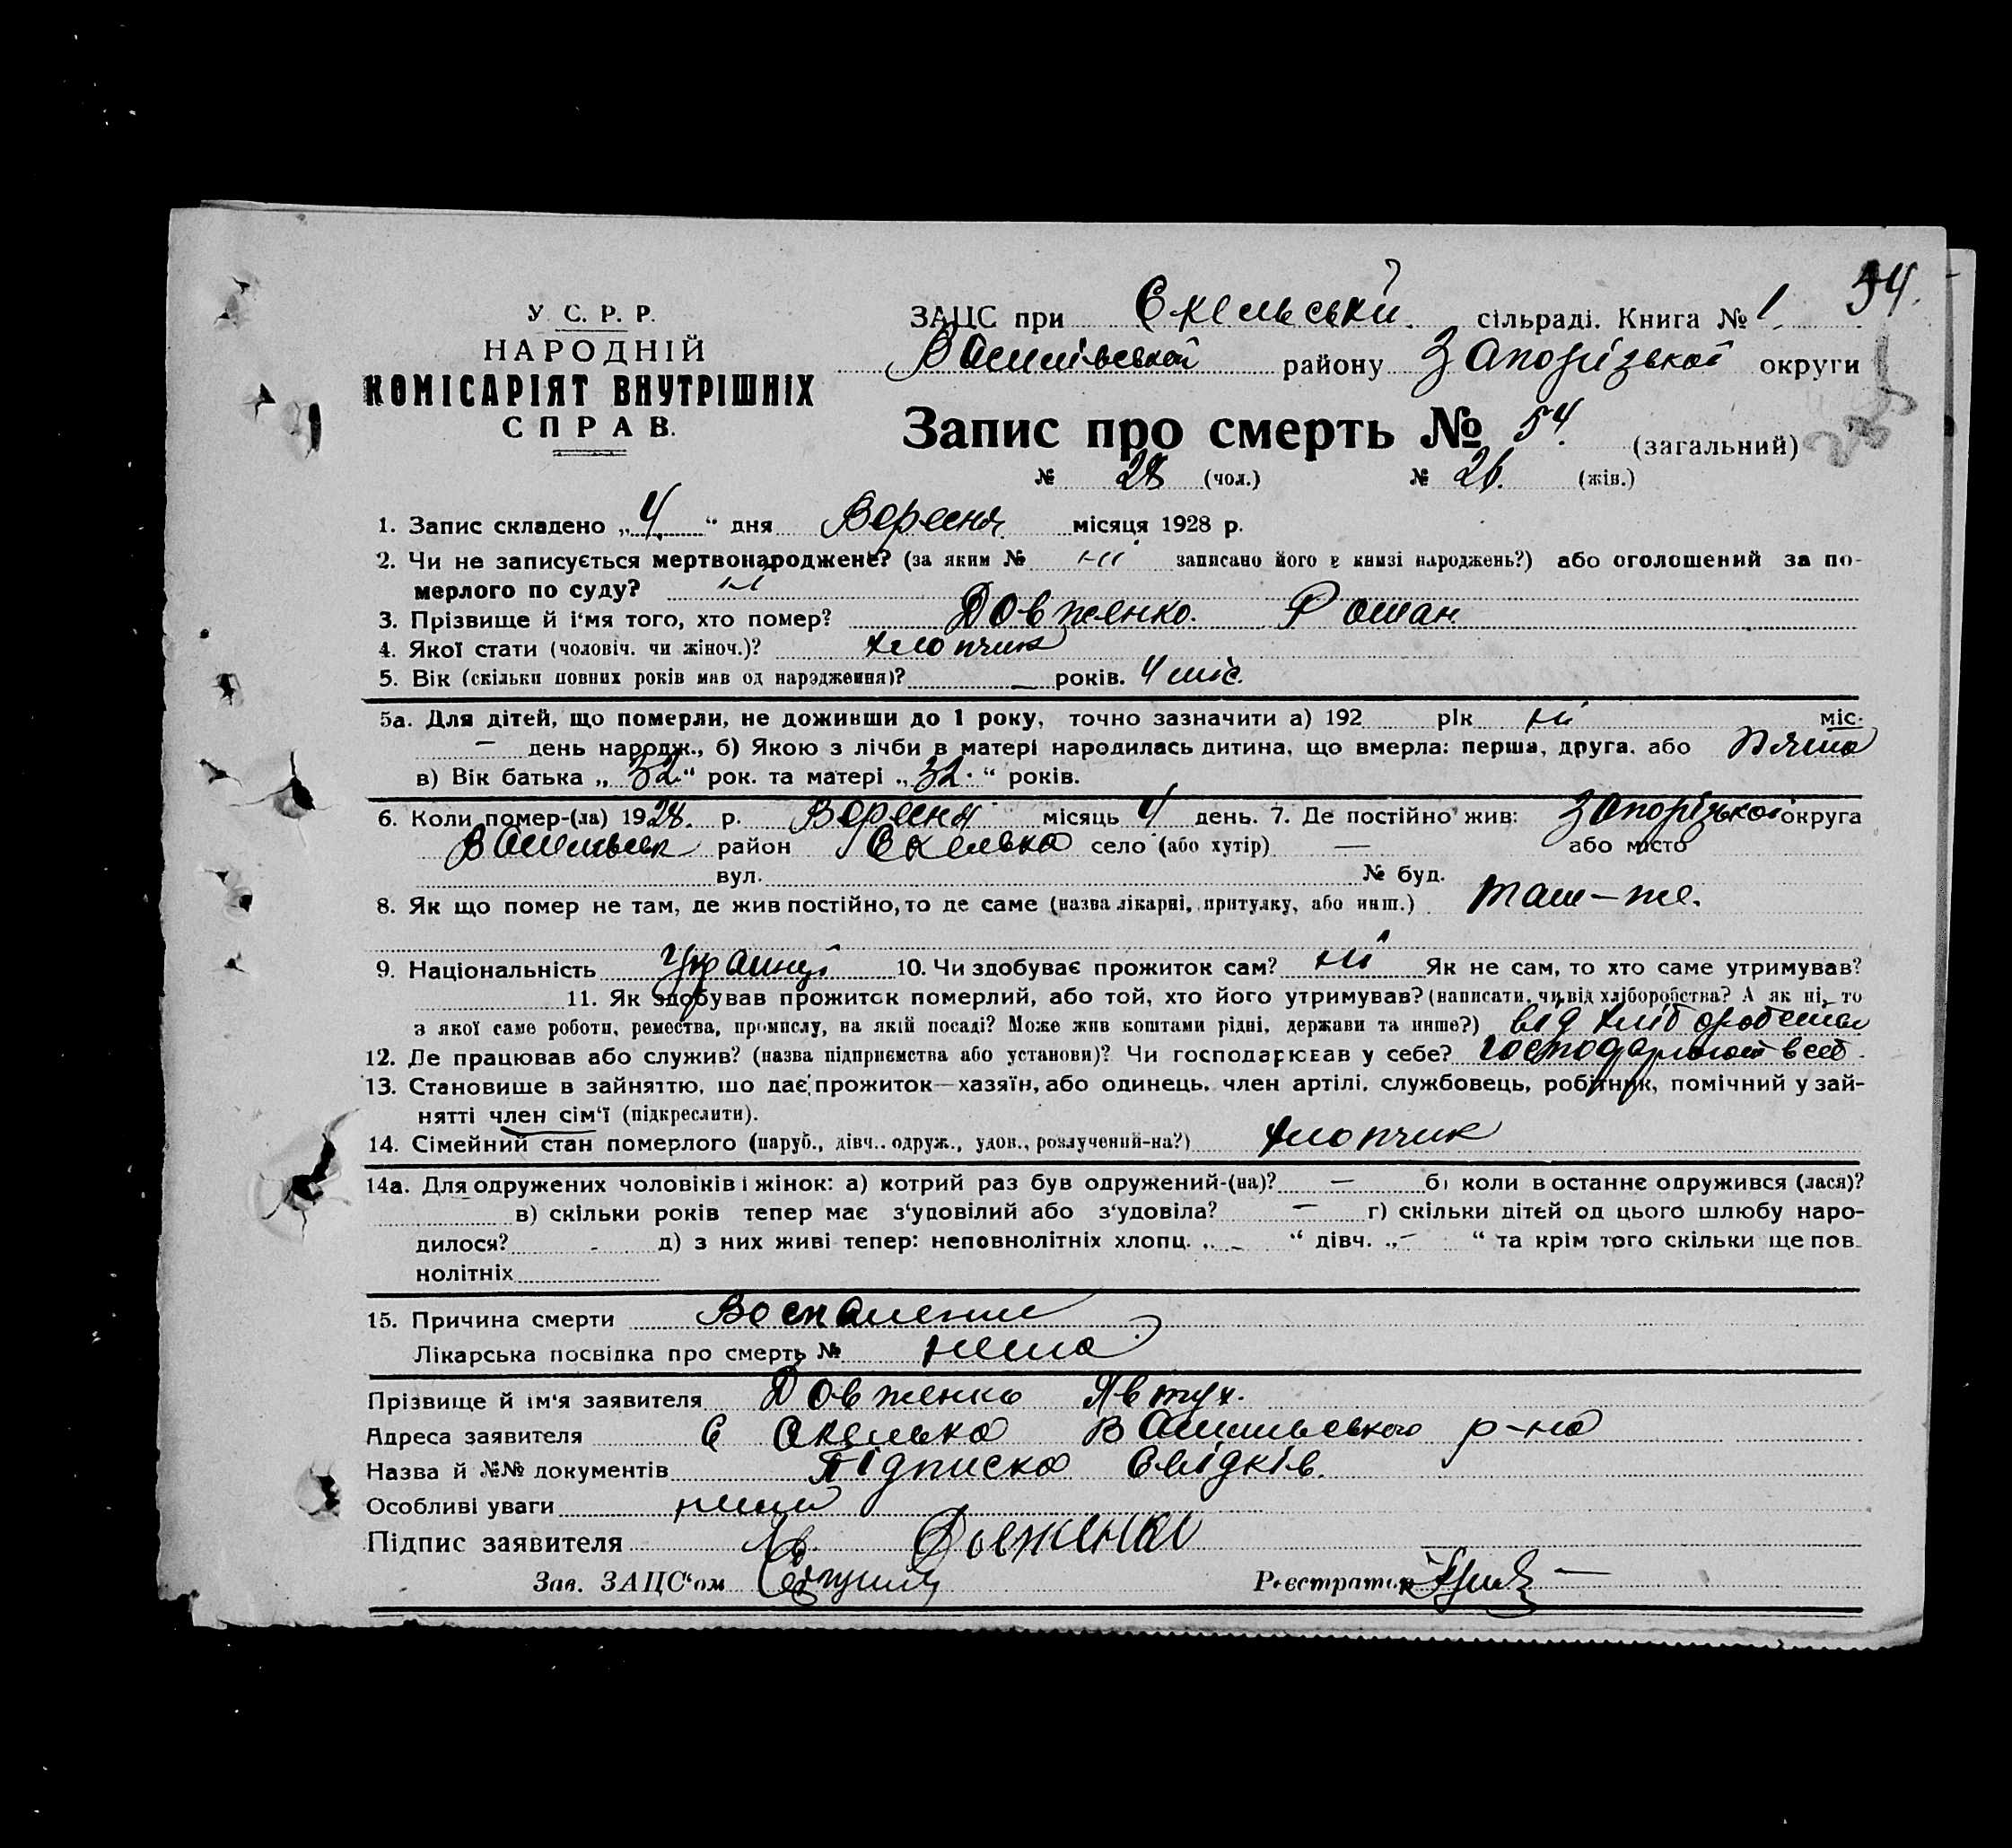 54.
У. С. Р. Р.
НАРОДНІЙ
КОМІСАРІЯТ ВНУТРІШНІХ
СПРАВ.
ЗАЦС при Скельській сільраді. Книга № 1.
Василівської району Запорізької округи
Запис про смерть № 54. (загальний)
№ 28 (чол.) № 26. (жін.)
1. Запис складено „4“ дня Вересня місяця 1928 р.
2. Чи не записується мертвонароджене? (за яким № ні записано його в книзі народжень?) або оголошений за по-
мерлого по суду? ні
3. Прізвище й і'мя того, хто помер? Довженко. Роман.
4. Якої стати (чоловіч. чи жіноч.)? хлопчик
5. Вік (скільки повних років мав од народження)? — років. 4 міс.
5а. Для дітей, що померли, не доживши до 1 року, точно зазначити а) 192 рік ні міс.
— день народж., б) Якою з лічби в матері народилась дитина, що вмерла: перша, друга, або Пята
в) Вік батька „32“ рок. та матері „32.“ років.
6. Коли помер-(ла) 1928. р. Вересня місяць 4 день. 7. Де постійно жив: Запорізької округа
район Скелька село (або хутір) — або місто
вул. № буд.
8. Як що помер не там, де жив постійно, то де саме (назва лікарні, притулку, або инш.) там-же.
9. Національність 10. Чи здобуває прожиток сам? ні Як не сам, то хто саме утримував?
11. Як здобував прожиток померлий, або той, хто його утримував? (написати, чи від хліборобства? А як ні, то
з якої саме роботи, ремества, промислу, на якій посаді? Може жив коштами рідні, держави та инше?) від хліборобства
12. Де працював або служив? (назва підприємства або установи)? Чи господарював у себе?
13. Становише в зайняттю, що дає прожиток—хазяїн, або одинець, член артілі, службовець, робітник, помічний у зай-
нятті член сім'ї (підкреслити).
14. Сімейний стан померлого (паруб., дівч., одруж., удов., розлучений-на?) хлопчик
14а. Для одружених чоловіків і жінок: а) котрий раз був одружений-(на)? — б) коли в останнє одружився (лася)?
в) скільки років тепер має з'удовілий або з'удовіла? — г) скільки дітей од цього шлюбу наро-
дилося? - д) з них живі тепер: неповнолітніх хлопц. „-“ дівч. „-“ та крім того скільки ще пов-
нолітніх
15. Причина смерти Воспаление
Лікарська посвідка про смерть № нема
Прізвище й ім'я заявителя Довженко Явтух.
Адреса заявителя с Скелька Василівського р-на
Назва й №№ документів Підписка Свідків.
Особливі уваги нема
Підпис заявителя Яв. Довженко
Зав. ЗАЦС'ом
Реєстратор